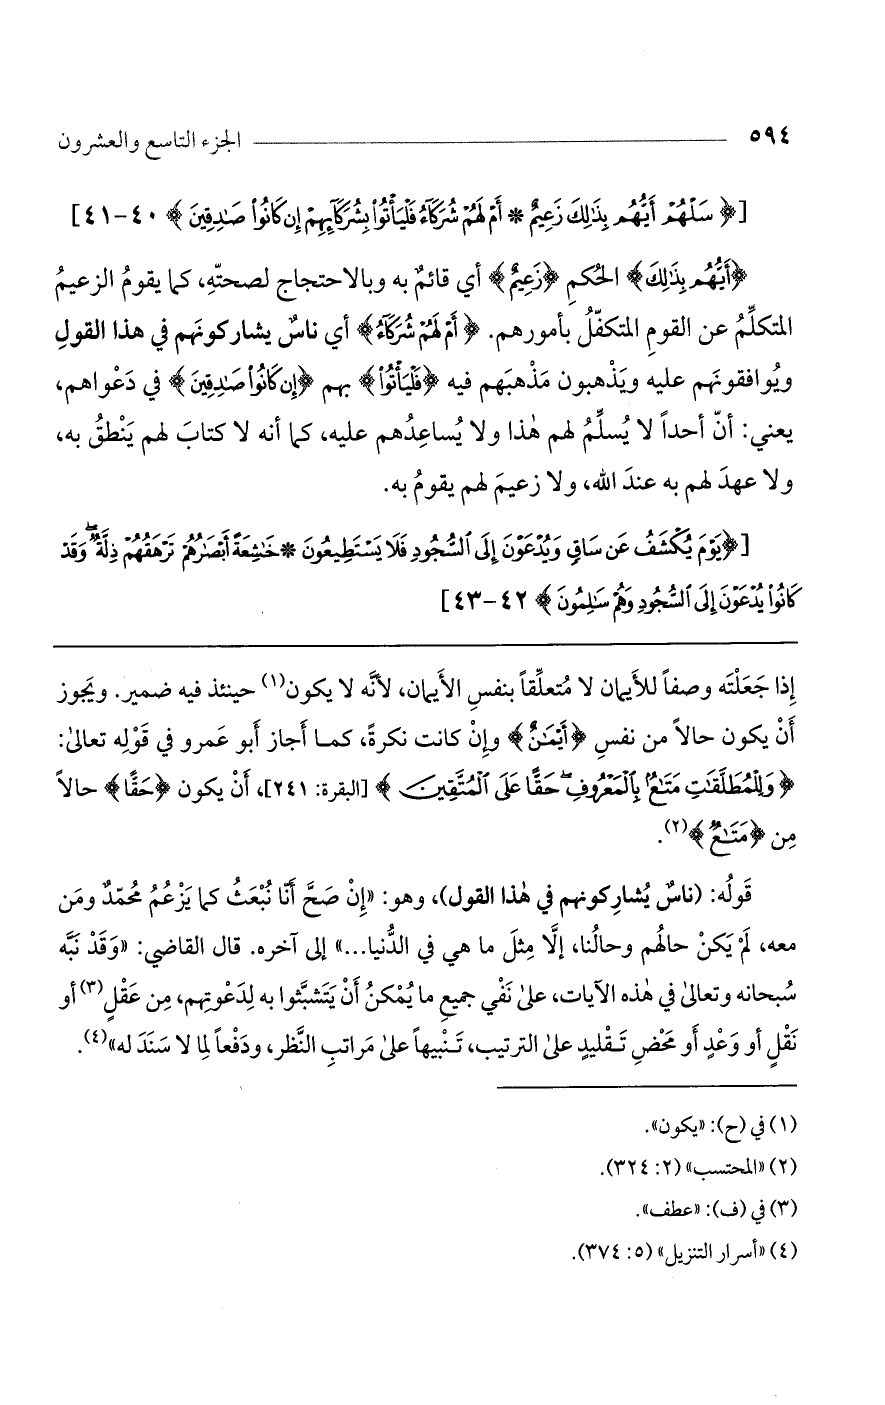 ٥٩٤ الجزء التاسع والعشرون
[﴿ سَلْهُمْ أَيُّهُم بِذَٰلِكَ زَعِيمٌ * أَمْ لَهُمْ شُرَكَآءُ فَلْيَأْتُوا۟ بِشُرَكَآئِهِمْ إِن كَانُوا۟ صَـٰدِقِينَ ﴾ ٤٠-٤١]
﴿أَيُّهُم بِذَٰلِكَ﴾ الحُكمِ ﴿زَعِيمٌ﴾ أي قائمٌ به وبالاحتجاج لصحتّهِ، كما يقومُ الزعيمُ
المتكلِّمُ عن القومِ المتكفّلُ بأمورهم. ﴿ أَمْ لَهُمْ شُرَكَآءُ﴾ أي ناسٌ يشاركونَهم في هذا القولِ
ويُوافقونَهم عليه ويَذْهبون مَذْهبَهم فيه ﴿فَلْيَأْتُوا۟﴾ بهم ﴿إِن كَانُوا۟ صَـٰدِقِينَ﴾ في دَعْواهم،
يعني: أنّ أحداً لا يُسلِّمُ لهم هٰذا ولا يُساعِدُهم عليه، كما أنه لا كتابَ لهم يَنْطقُ به،
ولا عهدَ لهم به عندَ الله، ولا زعيمَ لهم يقومُ به.
[﴿يَوْمَ يُكْشَفُ عَن سَاقٍ وَيُدْعَوْنَ إِلَى ٱلسُّجُودِ فَلَا يَسْتَطِيعُونَ * خَـٰشِعَةً أَبْصَـٰرُهُمْ تَرْهَقُهُمْ ذِلَّةٌ ۖ وَقَدْ
كَانُوا۟ يُدْعَوْنَ إِلَى ٱلسُّجُودِ وَهُمْ سَـٰلِمُونَ ﴾ ٤٢-٤٣]
إذا جَعَلْتَه وصفاً للأيمان لا مُتعلِّقاً بنفسِ الأيمان، لأنَّه لا يكون(١) حينئذ فيه ضمير. ويَجوز
أنْ يكون حالاً من نفسِ ﴿أَيْمَـٰنٌ﴾ وإنْ كانت نكرةً، كمـا أجاز أبو عَمرو في قَوْلِه تعالىٰ:
﴿ وَلِلْمُطَلَّقَـٰتِ مَتَـٰعٌۢ بِٱلْمَعْرُوفِ ۖ حَقًّا عَلَى ٱلْمُتَّقِينَ ﴾ [البقرة: ٢٤١]، أنْ يكون ﴿حَقًّا﴾ حالاً
مِن ﴿مَتَـٰعٌ﴾(٢).
قَولُه: (ناسٌ يُشارِكونهم في هٰذا القول)، وهو: «إنْ صَحَّ أنَّا نُبْعَثُ كما يَزْعُمُ محُمّدٌ ومَن
معه، لَمْ يَكنْ حالُهم وحالُنا، إلَّا مِثلَ ما هي في الدُّنيا...» إلى آخره. قال القاضي: «وَقَدْ نَبَّه
سُبحانه وتعالىٰ في هٰذه الآيات، علىٰ نَفْي جميعِ ما يُمْكنُ أنْ يَتَشبَّثوا به لِدَعْوتِهم، مِن عَقْلٍ(٣) أو
نَقْلٍ أو وَعْدٍ أو مَحْضِ تَـقْليدٍ علىٰ الترتيب، تَـنْبيهاً علىٰ مَراتبِ النَّظر، ودَفْعاً لِما لا سَنَدَ له»(٤).
(١) في (ح): «يكون».
(٢) «المحتسب» (٢: ٣٢٤).
(٣) في (ف): «عطف».
(٤) «أسرار التنزيل» (٥: ٣٧٤).